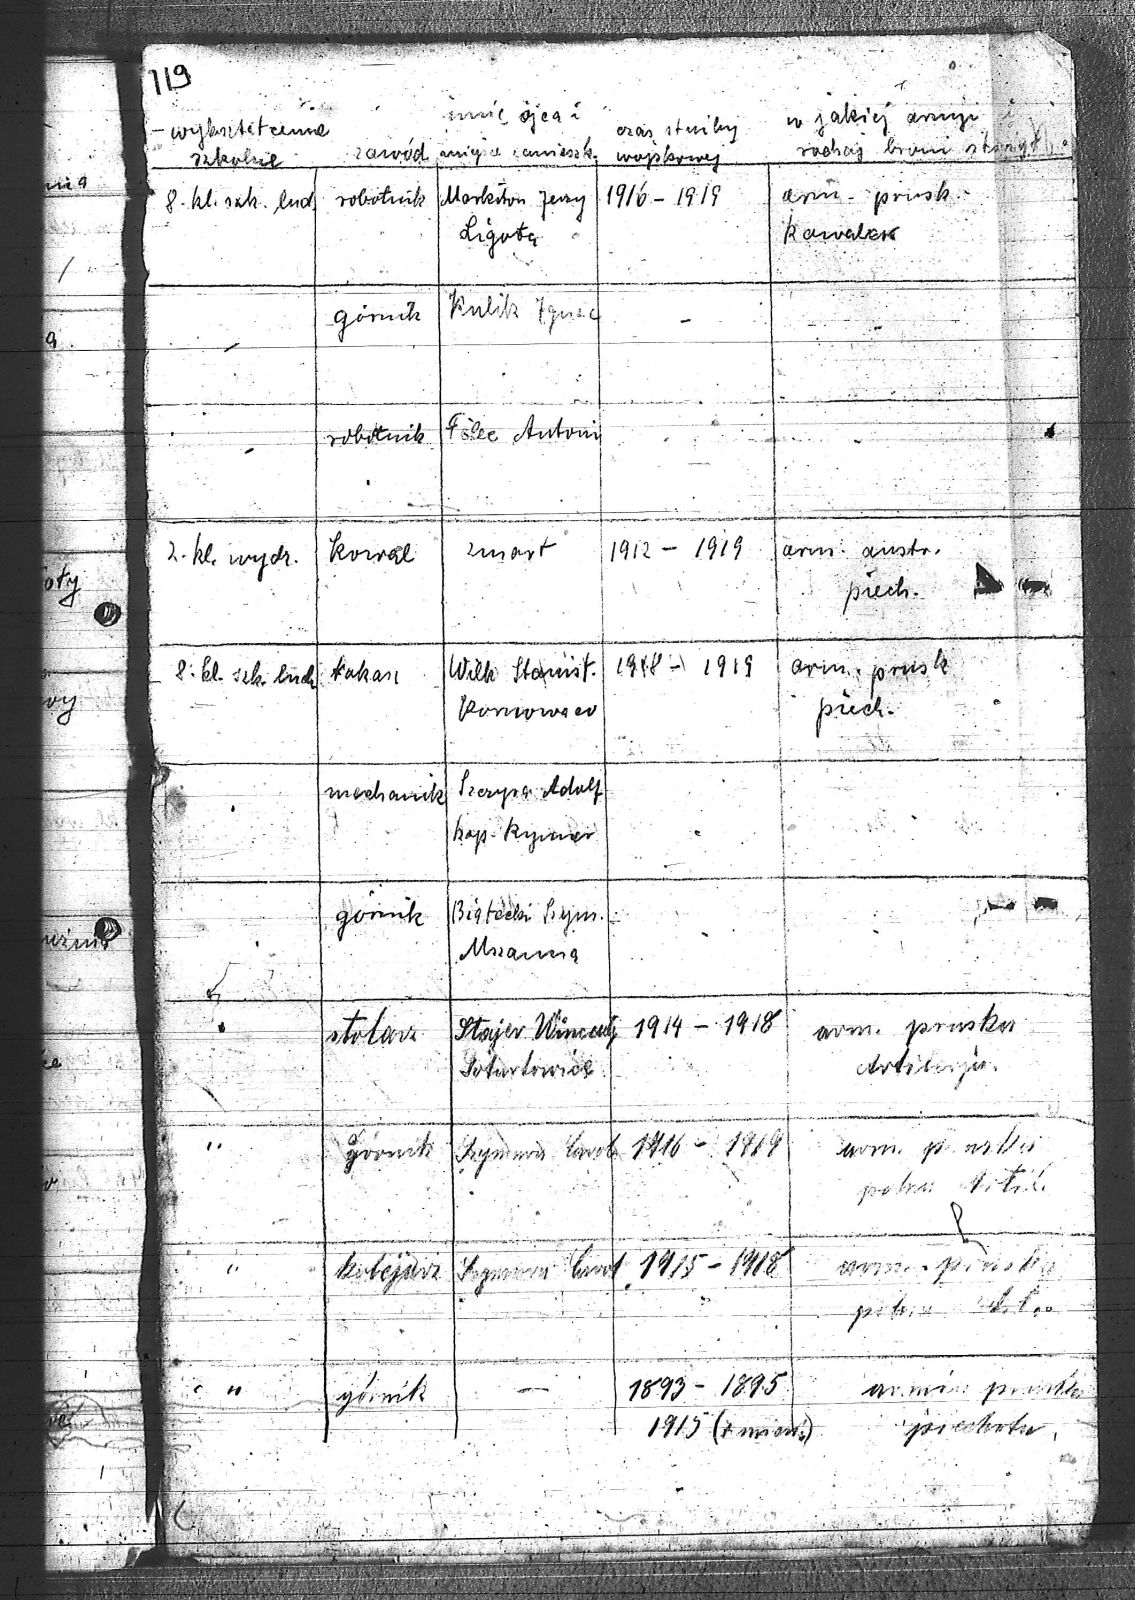 119
wykształcenie szkolne
zawód
imię ojca i miejsce zamieszk.
czas służby wojskowej
w jakiej armji i rodzaj broni służył
8. kl. szk. lud. robotnik Markiton Jerzy 1916 - 1919 arm. prusk.
Ligota
górnik Kulik Ignac -
robotnik Antoni
2. kl. wydz. kowal zmarł 1912 - 1919 arm. austr.
piech.
8. kl. szk. lud. Wilk Stanisł. 1918 - 1919 arm. prusk
Kornowac piech.
mechanik Szczypa Adolf
kop. Rymer
górnik Białecki Szym.
Mszanna
stolarz Stajer Wincenty 1914 - 1918 arm. pruska
Artilerja.
" górnik Szymura Carol 1916 - 1919 arm. pruska
polna
" kolejarz Szymura Carol 1915 - 1918 arm. pruska
polna
" górnik — 1893 - 1895 armia pruska
1915 piechota.